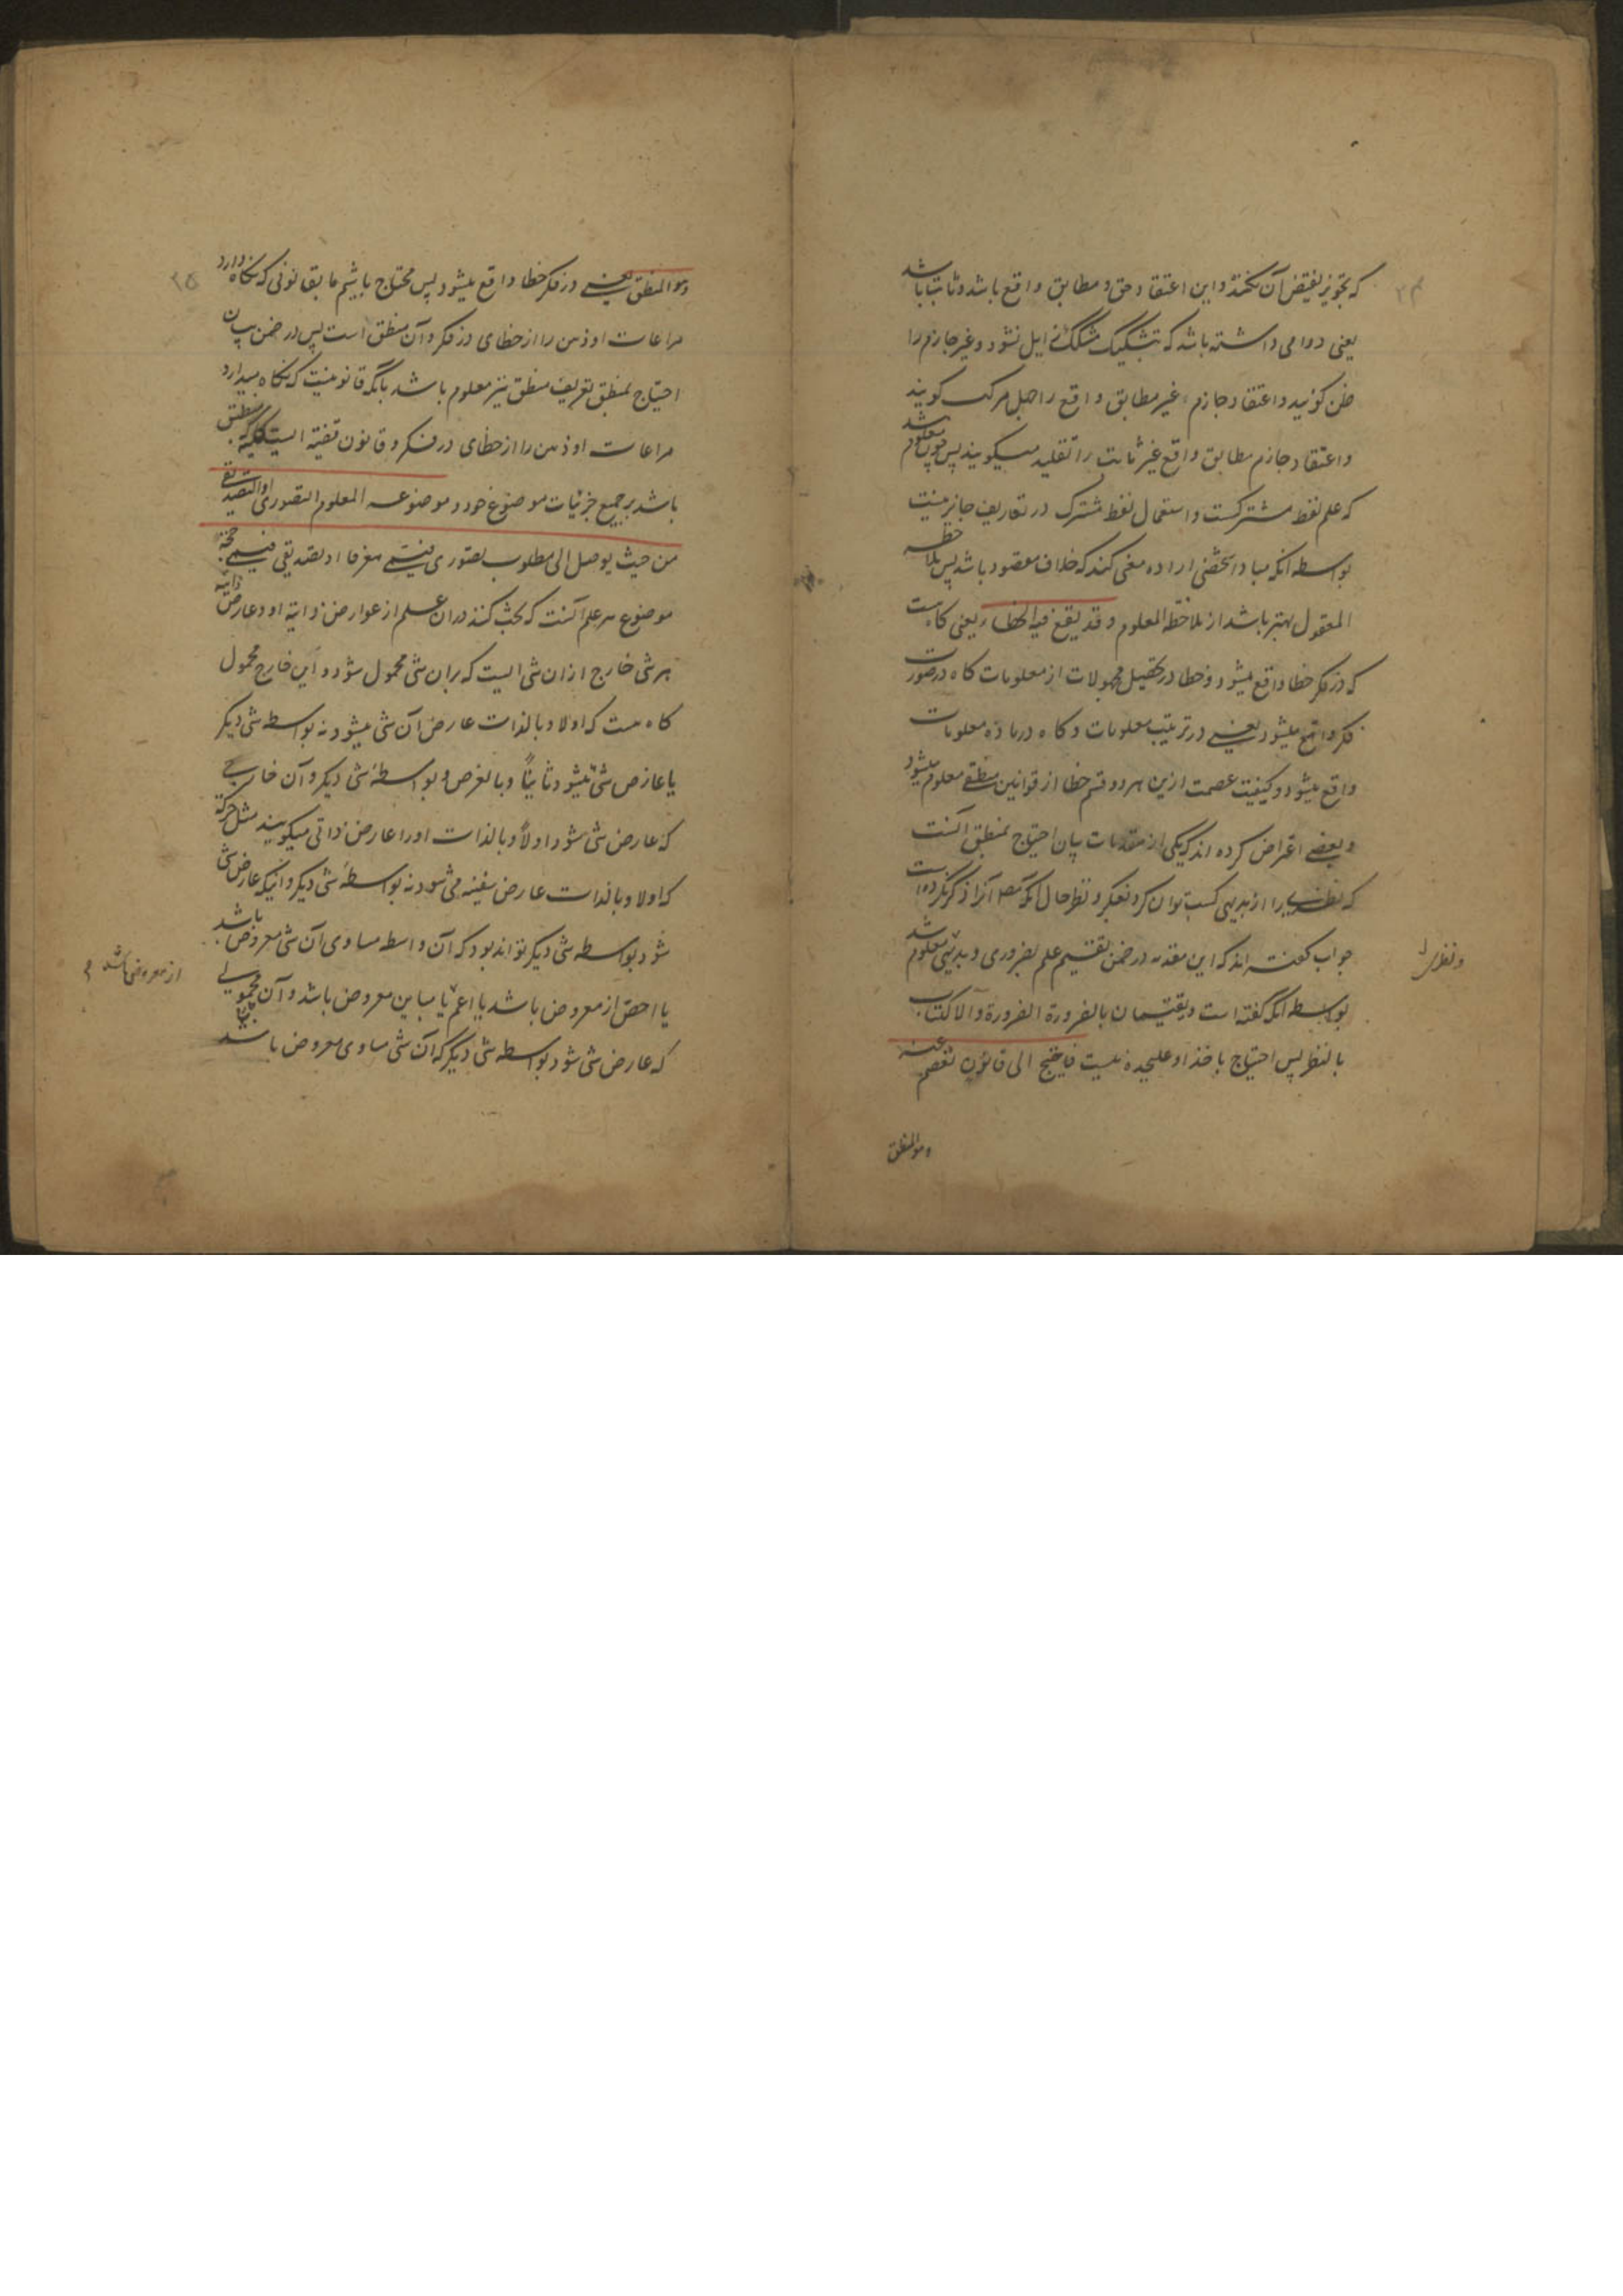 که تجویز نقیض آن نکند و این اعتقاد حق و مطابق واقع باشد و ثابت باشد
یعنی دوامی داشته باشد که بتشکیک مشکک زایل نشود و غیر جازم را
ظن گویند و اعتقاد جازم غیر مطابق واقع را جهل مرکب گویند
و اعتقاد جازم مطابق واقع غیر ثابت را تقلید میگویند پس چون معلوم شد
که علم لفظ مشترکست و استعمال لفظ مشترک در تعاریف جایز نیست
بواسطه انکه مبادا شخصی اراده معنی کند که خلاف مقصود باشد پس ملاحظه
المعقول بهتر باشد از ملاحظه المعلوم و قد یقع فیه الخطاء یعنی گاه هست
که در فکر خطا واقع میشود و خطا در تحصیل مجهولات از معلومات گاه در صورت
فکر واقع میشود یعنی در ترتیب معلومات و گاه در ماده معلومات
واقع میشود و کیفیت عصمت ازین هر دو قسم خطا از قوانین منطقی معلوم میشود
و بعضی اعتراض کرده اند که یکی از مقدمات بیان احتیاج بمنطق آنست
که نظری را از بدیهی کسب توان کرد بفکر و نظر حال آنکه مصـ آنرا ذکر نکرده است
جواب گفته اند که این مقدمه در ضمن تقسیم علم بضروری و بدیهی معلوم شد
و نظری
بواسطه انکه گفته است و یقتسمان بالضرورة الضرورة و الاکتساب
بالنظر پس احتیاج باخذ او علیحده نیست فاحتیج الی قانون تعصم عنه
و هو المنطق
۲۵
و هو المنطق یعنی در فکر خطا واقع میشود پس محتاج باشیم ما بقانونی که نگاه دارد
مراعات او ذهن را از خطای در فکر و آن منطق است پس در ضمن بیان
احتیاج بمنطق تعریف منطق نیز معلوم باشد بآنکه قانونیست که نگاه میدارد
مراعات او ذهن را از خطای در فکر و قانون قضیه ایست کلیه که منطبق
باشد بر جمیع جزئیات موضوع خود و موضوعه المعلوم التصوری او التصدیقی
من حیث یوصل الی مطلوب تصوری فیسمی معرفا او تصدیقی فیسمی حجة
موضوع هر علم آنست که بحث کنند در ان علم از عوارض ذاتیه او و عارض ذاتیه
هر شی خارج از ان شی ایست که بر ان شی محمول شود و این خارج محمول
گاه هست که اولا و بالذات عارض آن شی میشود نه بواسطه شی دیگر
یا عارض شی میشود ثانیاً و بالعرض و بواسطهٔ شی دیگر و آن خارجی
که عارض شی شود اولاً و بالذات او را عارض ذاتی میگویند مثل حرکة
که اولا و بالذات عارض سفینه می شود نه بواسطهٔ شی دیگر و انیکه عارض شی
شود بواسطه شی دیگر تواند بود که آن واسطه مساوی آن شی معروض باشد
یا اخص از معروض باشد یا اعم یا مباین معروض باشد و آن محمولی
از معروض باشد
که عارض شی شود بواسطه شی دیگر که آن شی مساوی معروض باشد